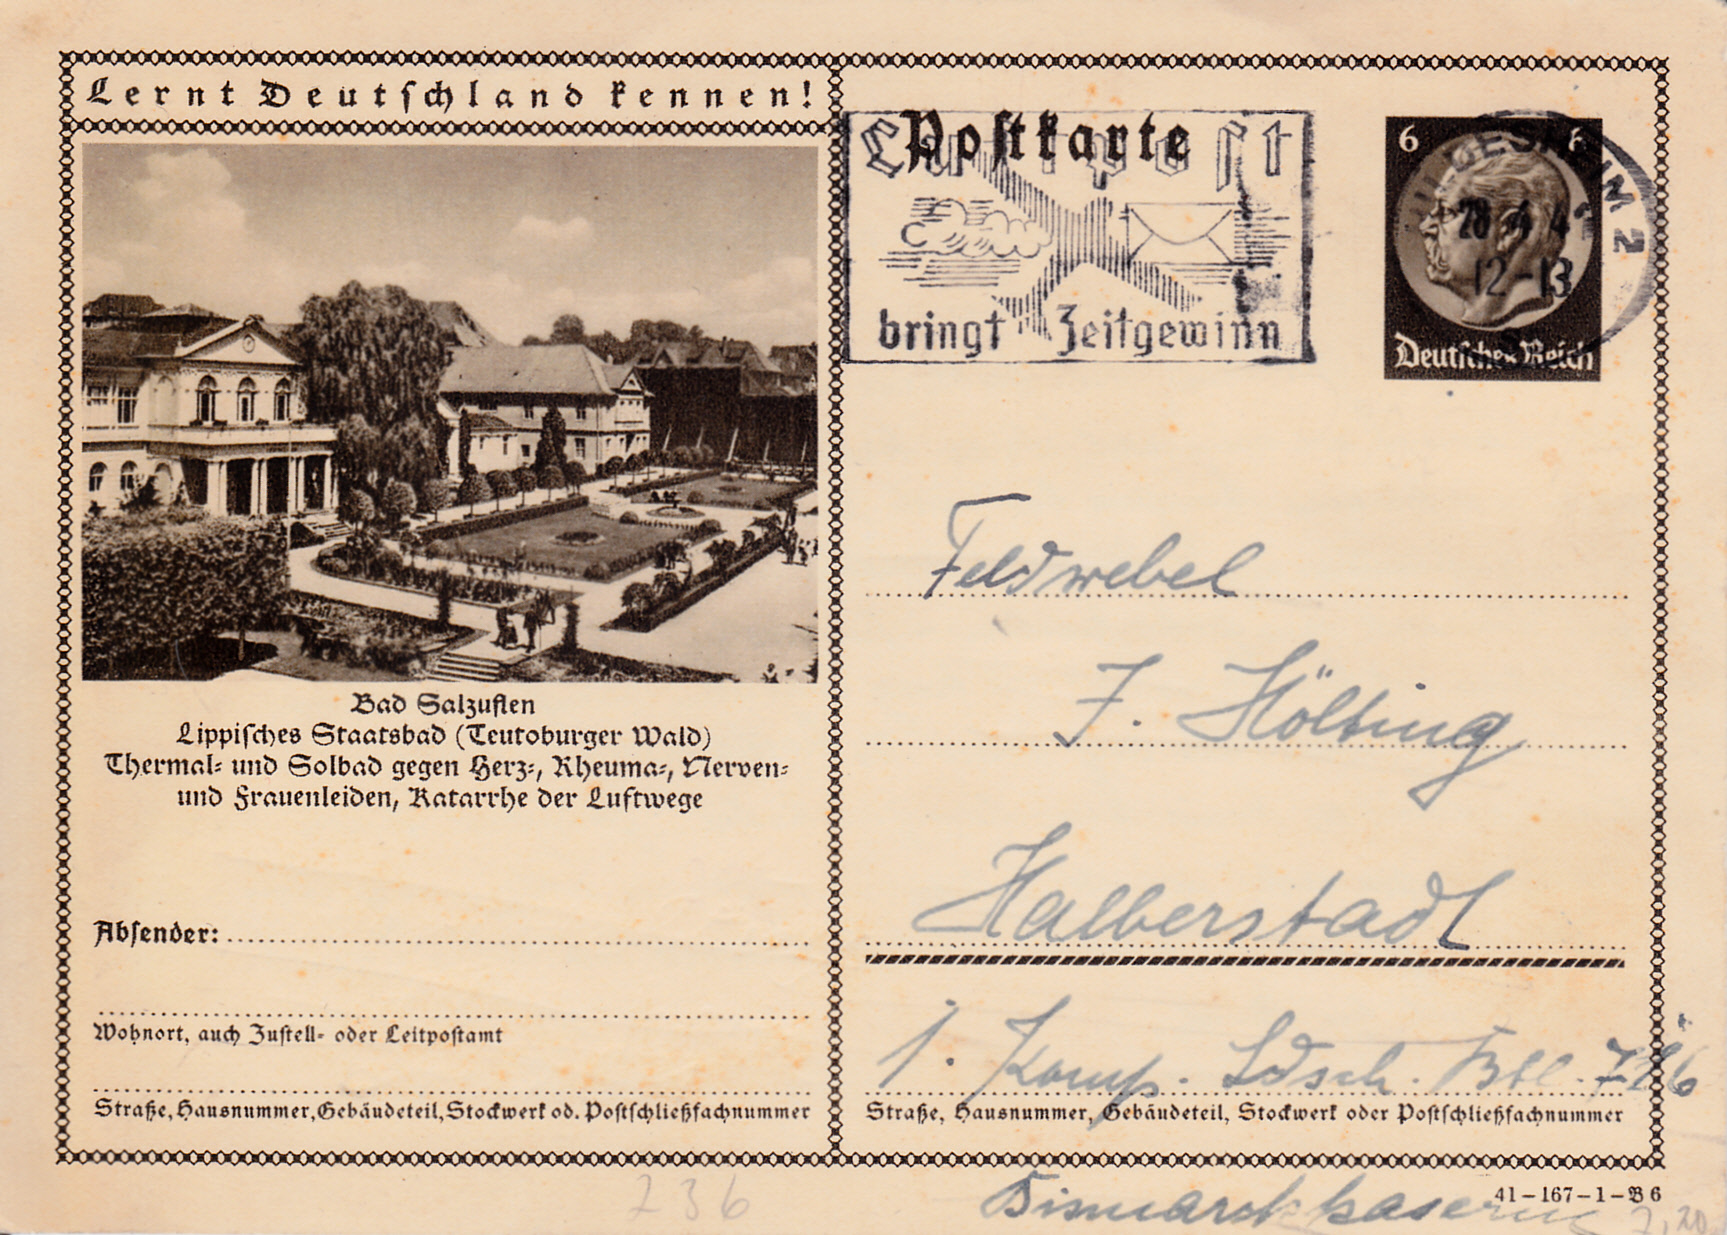 Lernt Deutschland kennen!
Postkarte
Luftpost
bringt Zeitgewinn
6 6
HILDESHEIM 2
28 4 4
12-13
Deutsches Reich
Bad Salzuflen
Lippisches Staatsbad (Teutoburger Wald)
Thermal- und Solbad gegen Herz-, Rheuma-, Nerven-
und Frauenleiden, Katarrhe der Luftwege
Feldwebel
F. Hölting
Halberstadt
Absender:
Wohnort, auch Zustell- oder Leitpostamt
Straße, Hausnummer, Gebäudeteil, Stockwerk od. Postschließfachnummer
1. Komp. Ldsch. Btl.
Straße, Hausnummer, Gebäudeteil, Stockwerk oder Postschließfachnummer
Bismarckkaserne
41-167-1-B6
236
7,20